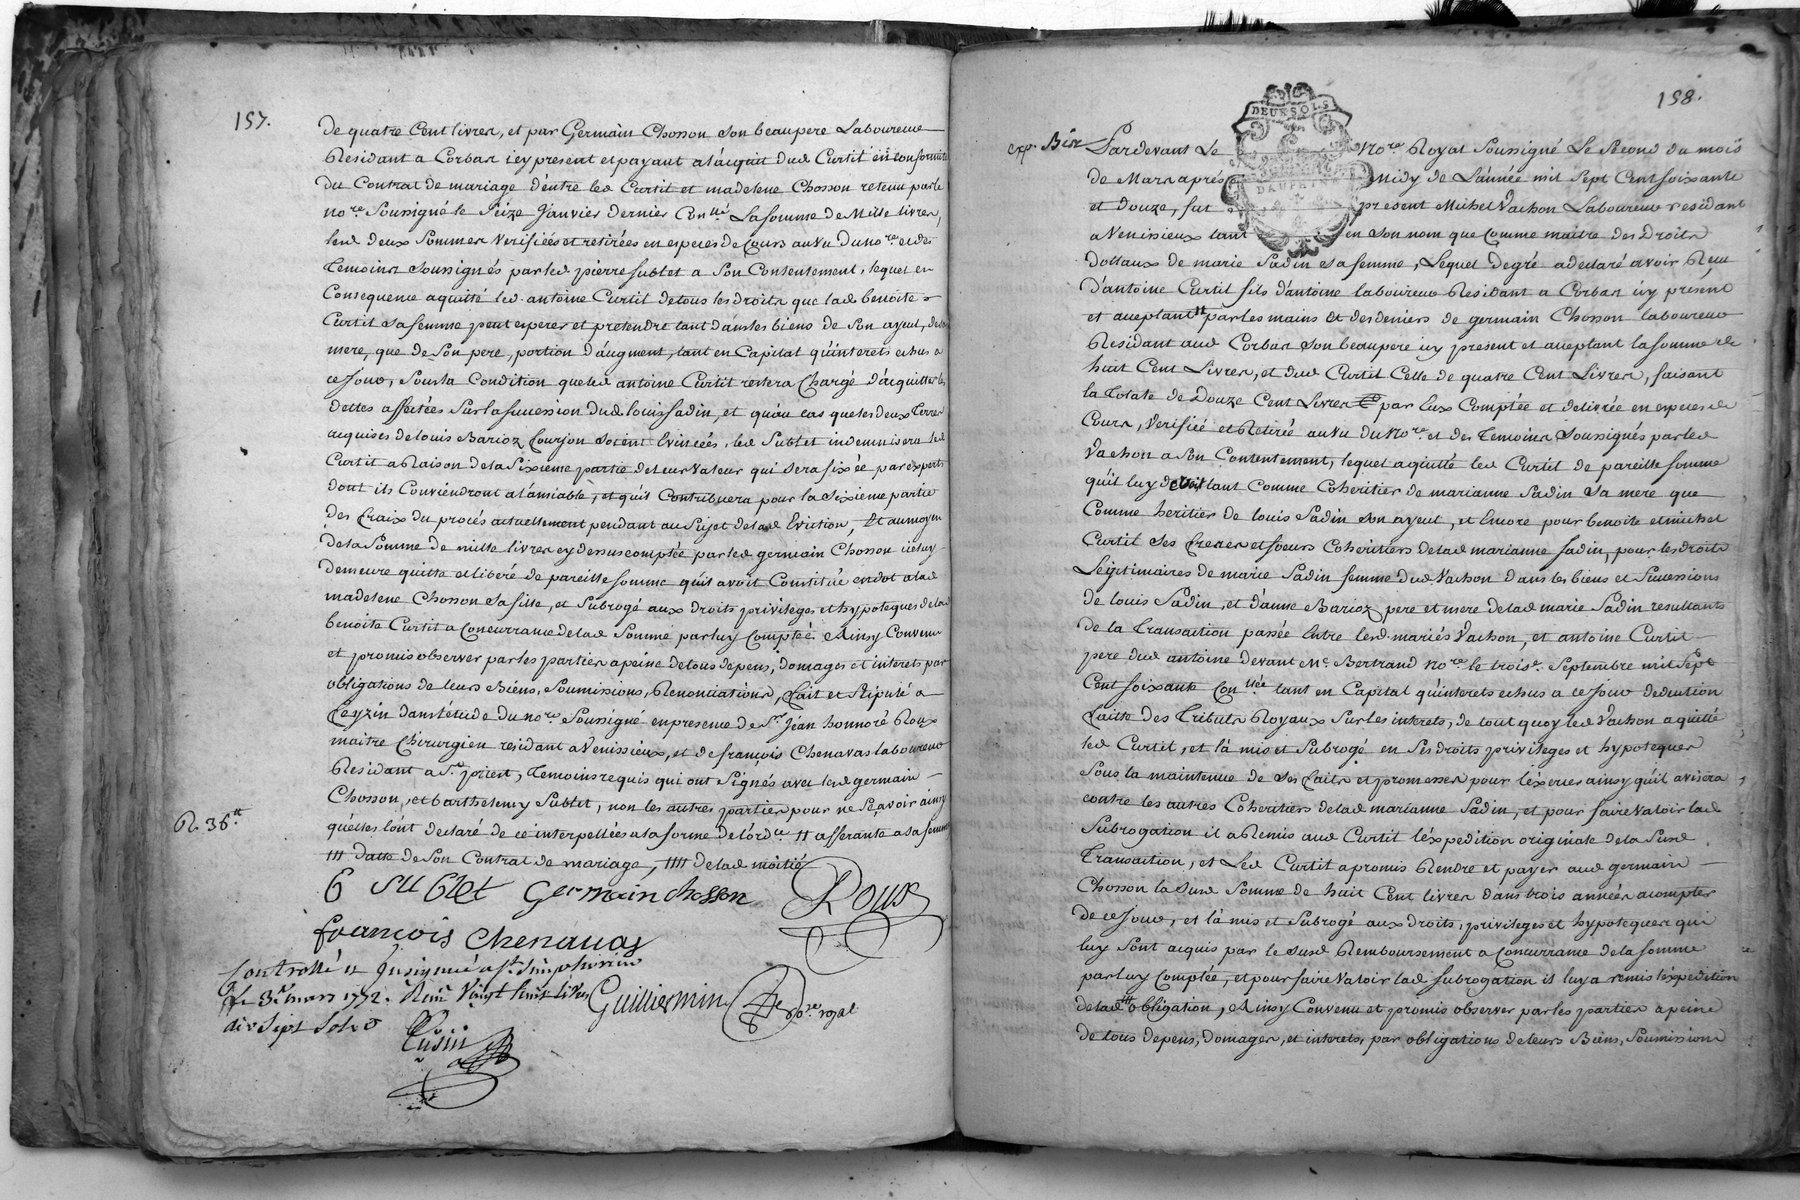 157.
de quatre Cent livres, et par Germain Chosson son beaupere Laboureur
Residant a Corbas icy present et payant a l'acquit dud Curtil en conformité
du Contrat de mariage d'entre led Curtil et madelene Chosson retenu par le
no.re Soussigné le Seize Janvier dernier Con.llé La somme de Mille livres,
lesd deux Sommes verifiées et retirées en especes de Cours au vu du no.re et des
Temoins soussignés par led pierre sublet a Son Consentement, lequel en
Consequence a quité led antoine Curtil de tous les droits que lad benoite
Curtil sa femme peut esperer et pretendre tant dans les biens de Son ayeul, de sa
mere, que de Son pere, portion d'augment, tant en Capital qu'interets echus a
ce Jour, Sous la Condition que led antoine Curtil restera Chargé d'acquitter les
dettes affectées Sur la succession dud louis sadin, et qu'au cas que les deux Terres
acquises de louis Barioz Courjon soient Evincées, led Sublet indemnisera led
Curtil a Raison de la Sixieme partie de leur valeur qui sera fixée par experts
dont ils Conviendront a l'amiable, et qu'il Contribuera pour la sixieme partie
des fraix du procés actuellement pendant au Sujet de lad Eviction, Et au moyen
de la Somme de mille livres cy dessus comptée par led germain Chosson iceluy
demeure quitte et liberé de pareille somme qu'il avoit Constitué en dot a lad
madelene Chosson sa fille, et Subrogé aux droits privileges et hypoteques de lad
benoite Curtil a Concurrance de lad Somme par luy Comptée. Ainsy Convenu
et promis observer par les parties a peine de tous depens, domages et interets par
obligations de leurs Biens, Soumissions, Renonciations, fait et Stipulé a
feyzin dans l'étude du no.re Soussigné en presence de S.r Jean honnoré Roux
maitre Chirurgien residant a Venissieux, et de françois Chenavas laboureur
Residant a S.t priest, Temoins requis qui ont Signés avec led germain
Chosson, et barthelemy Sublet, non les autres parties pour ne sçavoir ainsy
qu'elles l'ont declaré de ce interpellées a la forme de l'ord.ce 11 afferante a sa femme
R. 36.tt
111 datte de Son Contrat de mariage, 1111 de lad moitié
6 Sublet Germain chosson Roux
françois Chenavas
Controllé et Insinué a S.t Simphorien
le 3.e mars 1772. Reçu Vingt livres
dix Sept Sols
Guilliermin no.re royal
Cusin
158.
exp. Bis
DEUX SOLS
DAUPHINÉ
Pardevant Le no.re Royal Soussigné Le Second du mois
de Mars aprés Midy de L'année mil Sept Cent soixante
et douze, fut present Michel Vachon Laboureur residant
a Venissieux tant en son nom que Comme maitre des Droits
dottaux de marie Sadin sa femme, Lequel degré a declaré avoir Reçu
d'antoine Curtil fils d'antoine laboureur Residant a Corbas icy present
et acceptant 11 par les mains et des deniers de germain Chosson laboureur
Residant aud Corbas son beaupere icy present et acceptant la somme de
huit Cent Livres, et dud Curtil Celle de quatre Cent Livres, faisant
la totale de Douze Cent Livres par Eux Comptée et delivrée en especes de
Cours, verifié et Retiré au vu du no.re et des Temoins Soussignés par led
Vachon a Son Contentement, lequel a quitté led Curtil de pareille somme
qu'il luy devoit tant comme Coheritier de marianne Sadin Sa mere que
Comme heritier de louis Sadin son ayeul, et Encore pour benoite et michel
Curtil Ses freres et soeurs Coheritiers de lad marianne Sadin, pour les droits
Legitimaires de marie Sadin femme dud Vachon dans les biens et Successions
de louis Sadin, et d'anne Barioz pere et mere de lad marie Sadin resultants
de la Transaction passée Entre lesd mariés Vachon, et antoine Curtil
pere dud antoine devant M.e Bertrand no.re le trois.e Septembre mil Sept
Cent soixante Con.llée tant en Capital qu'interets echus a ce Jour deduction
faitte des Tributs Royaux Sur les interets, de tout quoy led Vachon a quitté
led Curtil, et l'a mis et Subrogé en Ses droits privileges et hypoteques
Sous la maintenue de Ses faits et promesses pour l'exercer ainsy qu'il avisera
contre les autres Coheritiers de lad marianne Sadin, et pour faire valoir lad
Subrogation il a Remis aud Curtil l'éxpedition originale de la Susd
Transaction, et Led Curtil a promis Rendre et payer aud germain
Chosson la susd Somme de huit Cent livres dans trois années a compter
de ce Jour, et l'a mis et Subrogé aux droits, privileges et hypoteques qui
luy sont acquis par le susd Remboursement a Concurrance de la somme
par luy Comptée, et pour faire valoir lad subrogation il luy a remis l'éxpedition
de lad 111 obligation, Ainsy Convenu et promis observer par les parties a peine
de tous depens, domages, et interets, par obligations de leurs Biens, Soumissions